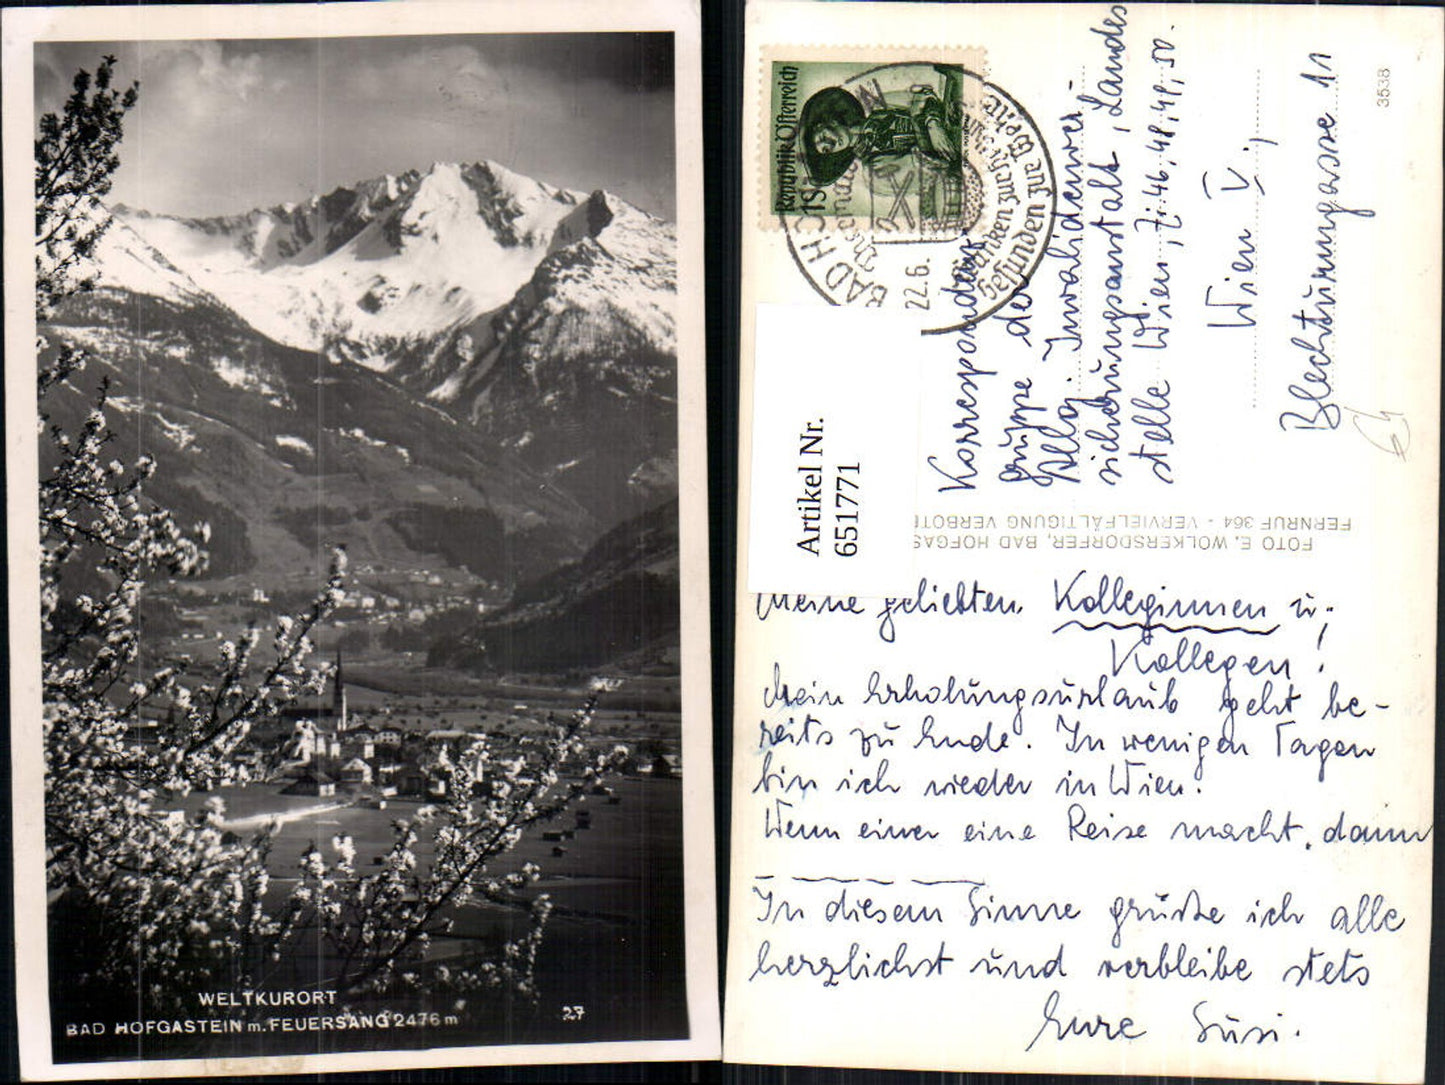 WELTKURORT
BAD HOFGASTEIN m. FEUERSANG 2476 m
27
Republik Österreich
1S
BAD HOF
22.6.
Kranken zur Heilung
Gesunden zur
Artikel Nr.
651771
Korrespondenz
gruppe der
Allg. Invalidenver-
sicherungsanstalt, Landes
stelle Wien, Z: 46, 48, 49, 50.
Wien V.,
Blechturmgasse 11
3538
FOTO E. WOLKERSDORFER, BAD HOFGAS
FERNRUF 364 - VERVIELFÄLTIGUNG VERBOTE
Meine geliebten Kolleginnen u.
Kollegen!
Mein Erholungsurlaub geht be-
reits zu Ende. In wenigen Tagen
bin ich wieder in Wien.
Wenn einer eine Reise macht, dann
In diesem Sinne grüße ich alle
herzlichst und verbleibe stets
Eure Susi.